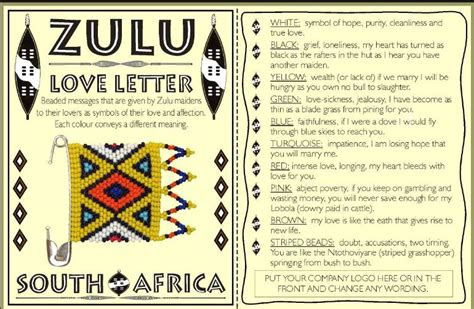 ZULU
LOVE LETTER
Beaded messages that are given by Zulu maidens
to their lovers as symbols of their love and affection.
Each colour conveys a different meaning.
SOUTH AFRICA
WHITE: symbol of hope, purity, cleanliness and
true love.
BLACK: grief, loneliness, my heart has turned as
black as the rafters in the hut as I hear you have
another maiden.
YELLOW: wealth (or lack of) if we marry I will be
hungry as you own no bull to slaughter.
GREEN: love-sickness, jealousy, I have become as
thin as a blade grass from pining for you.
BLUE: faithfulness, if I were a dove I would fly
through blue skies to reach you.
TURQUOISE: impatience, I am losing hope that
you will marry me.
RED: intense love, longing, my heart bleeds with
love for you.
PINK: abject poverty, if you keep on gambling and
wasting money, you will never save enough for my
Lobola (dowry paid in cattle).
BROWN: my love is like the eath that gives rise to
new life.
STRIPED BEADS: doubt, accusations, two timing.
You are like the Ntothoviyane (striped grasshopper)
springing from bush to bush.
PUT YOUR COMPANY LOGO HERE OR IN THE
FRONT AND CHANGE ANY WORDING.